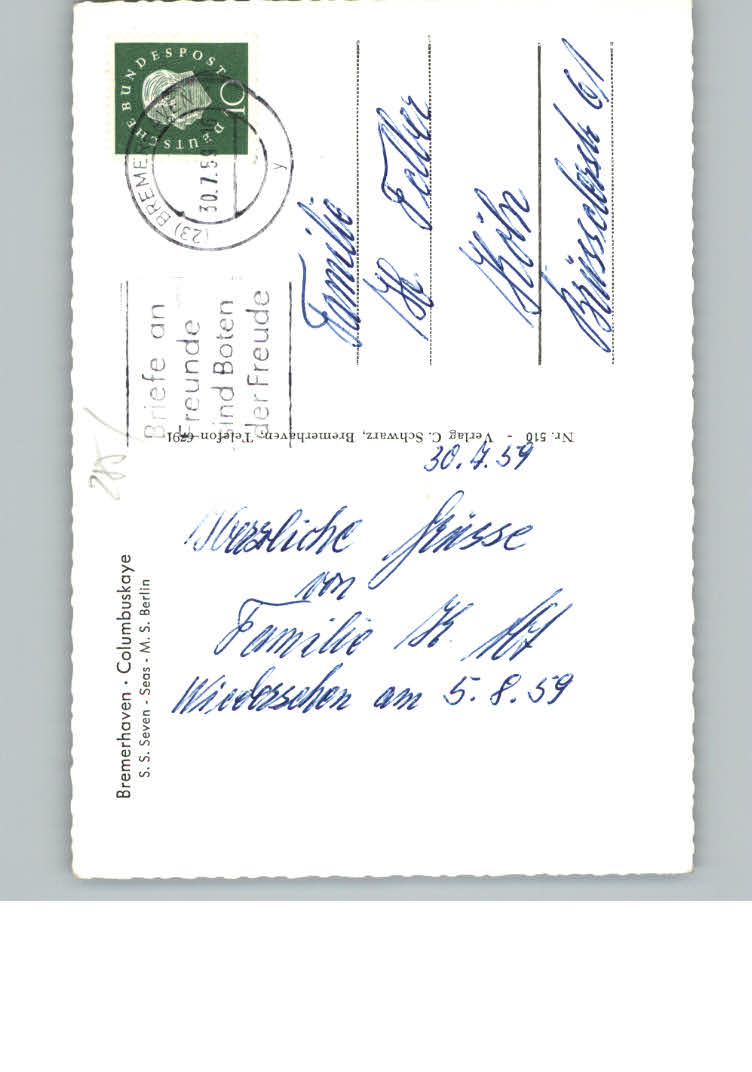 Bremerhaven · Columbuskaye
S. S. Seven - Seas - M. S. Berlin
30.7.59
Herzliche Grüsse
von
Familie H.
Wiedersehen am 5.8.59
Nr. 510 - Verlag C. Schwarz, Bremerhaven, Telefon 6791
Briefe an
Freunde
sind Boten
der Freude
(23) BREMERHAVEN
30.7.59
y
DEUTSCHE BUNDESPOST
10
Familie
H. Felber
Köln
Brüsselerstr 61